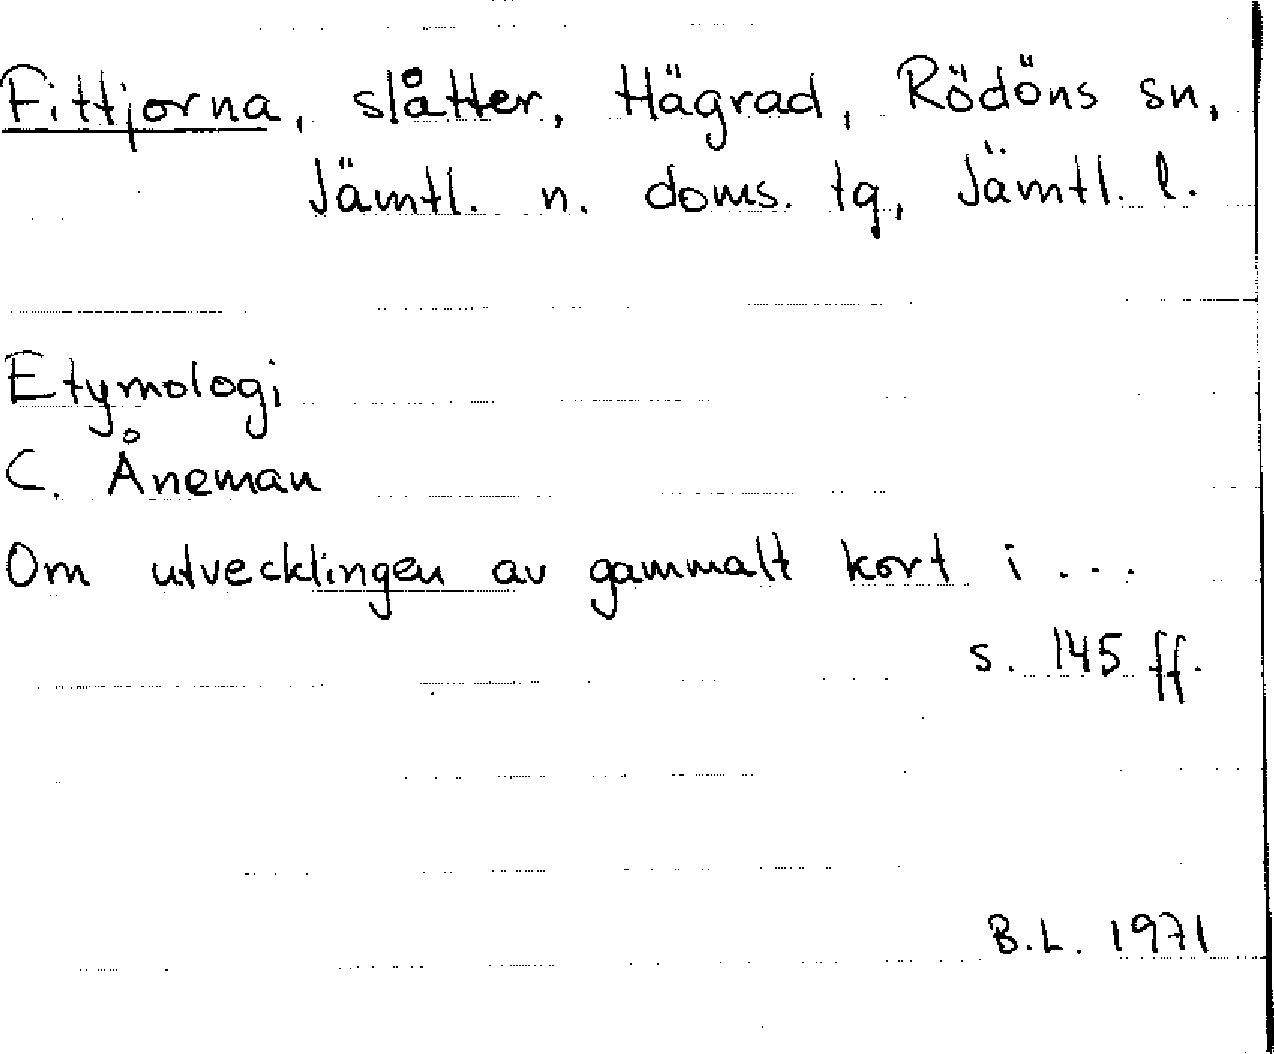 Fittjorna, slåtter, Hägrad, Rödöns sn,
Jämtl. n. doms. tg, Jämtl. l.
Etymologi
C. Åneman
Om utvecklingen av gammalt kort i ...
s. 145 ff.
B.L. 1971